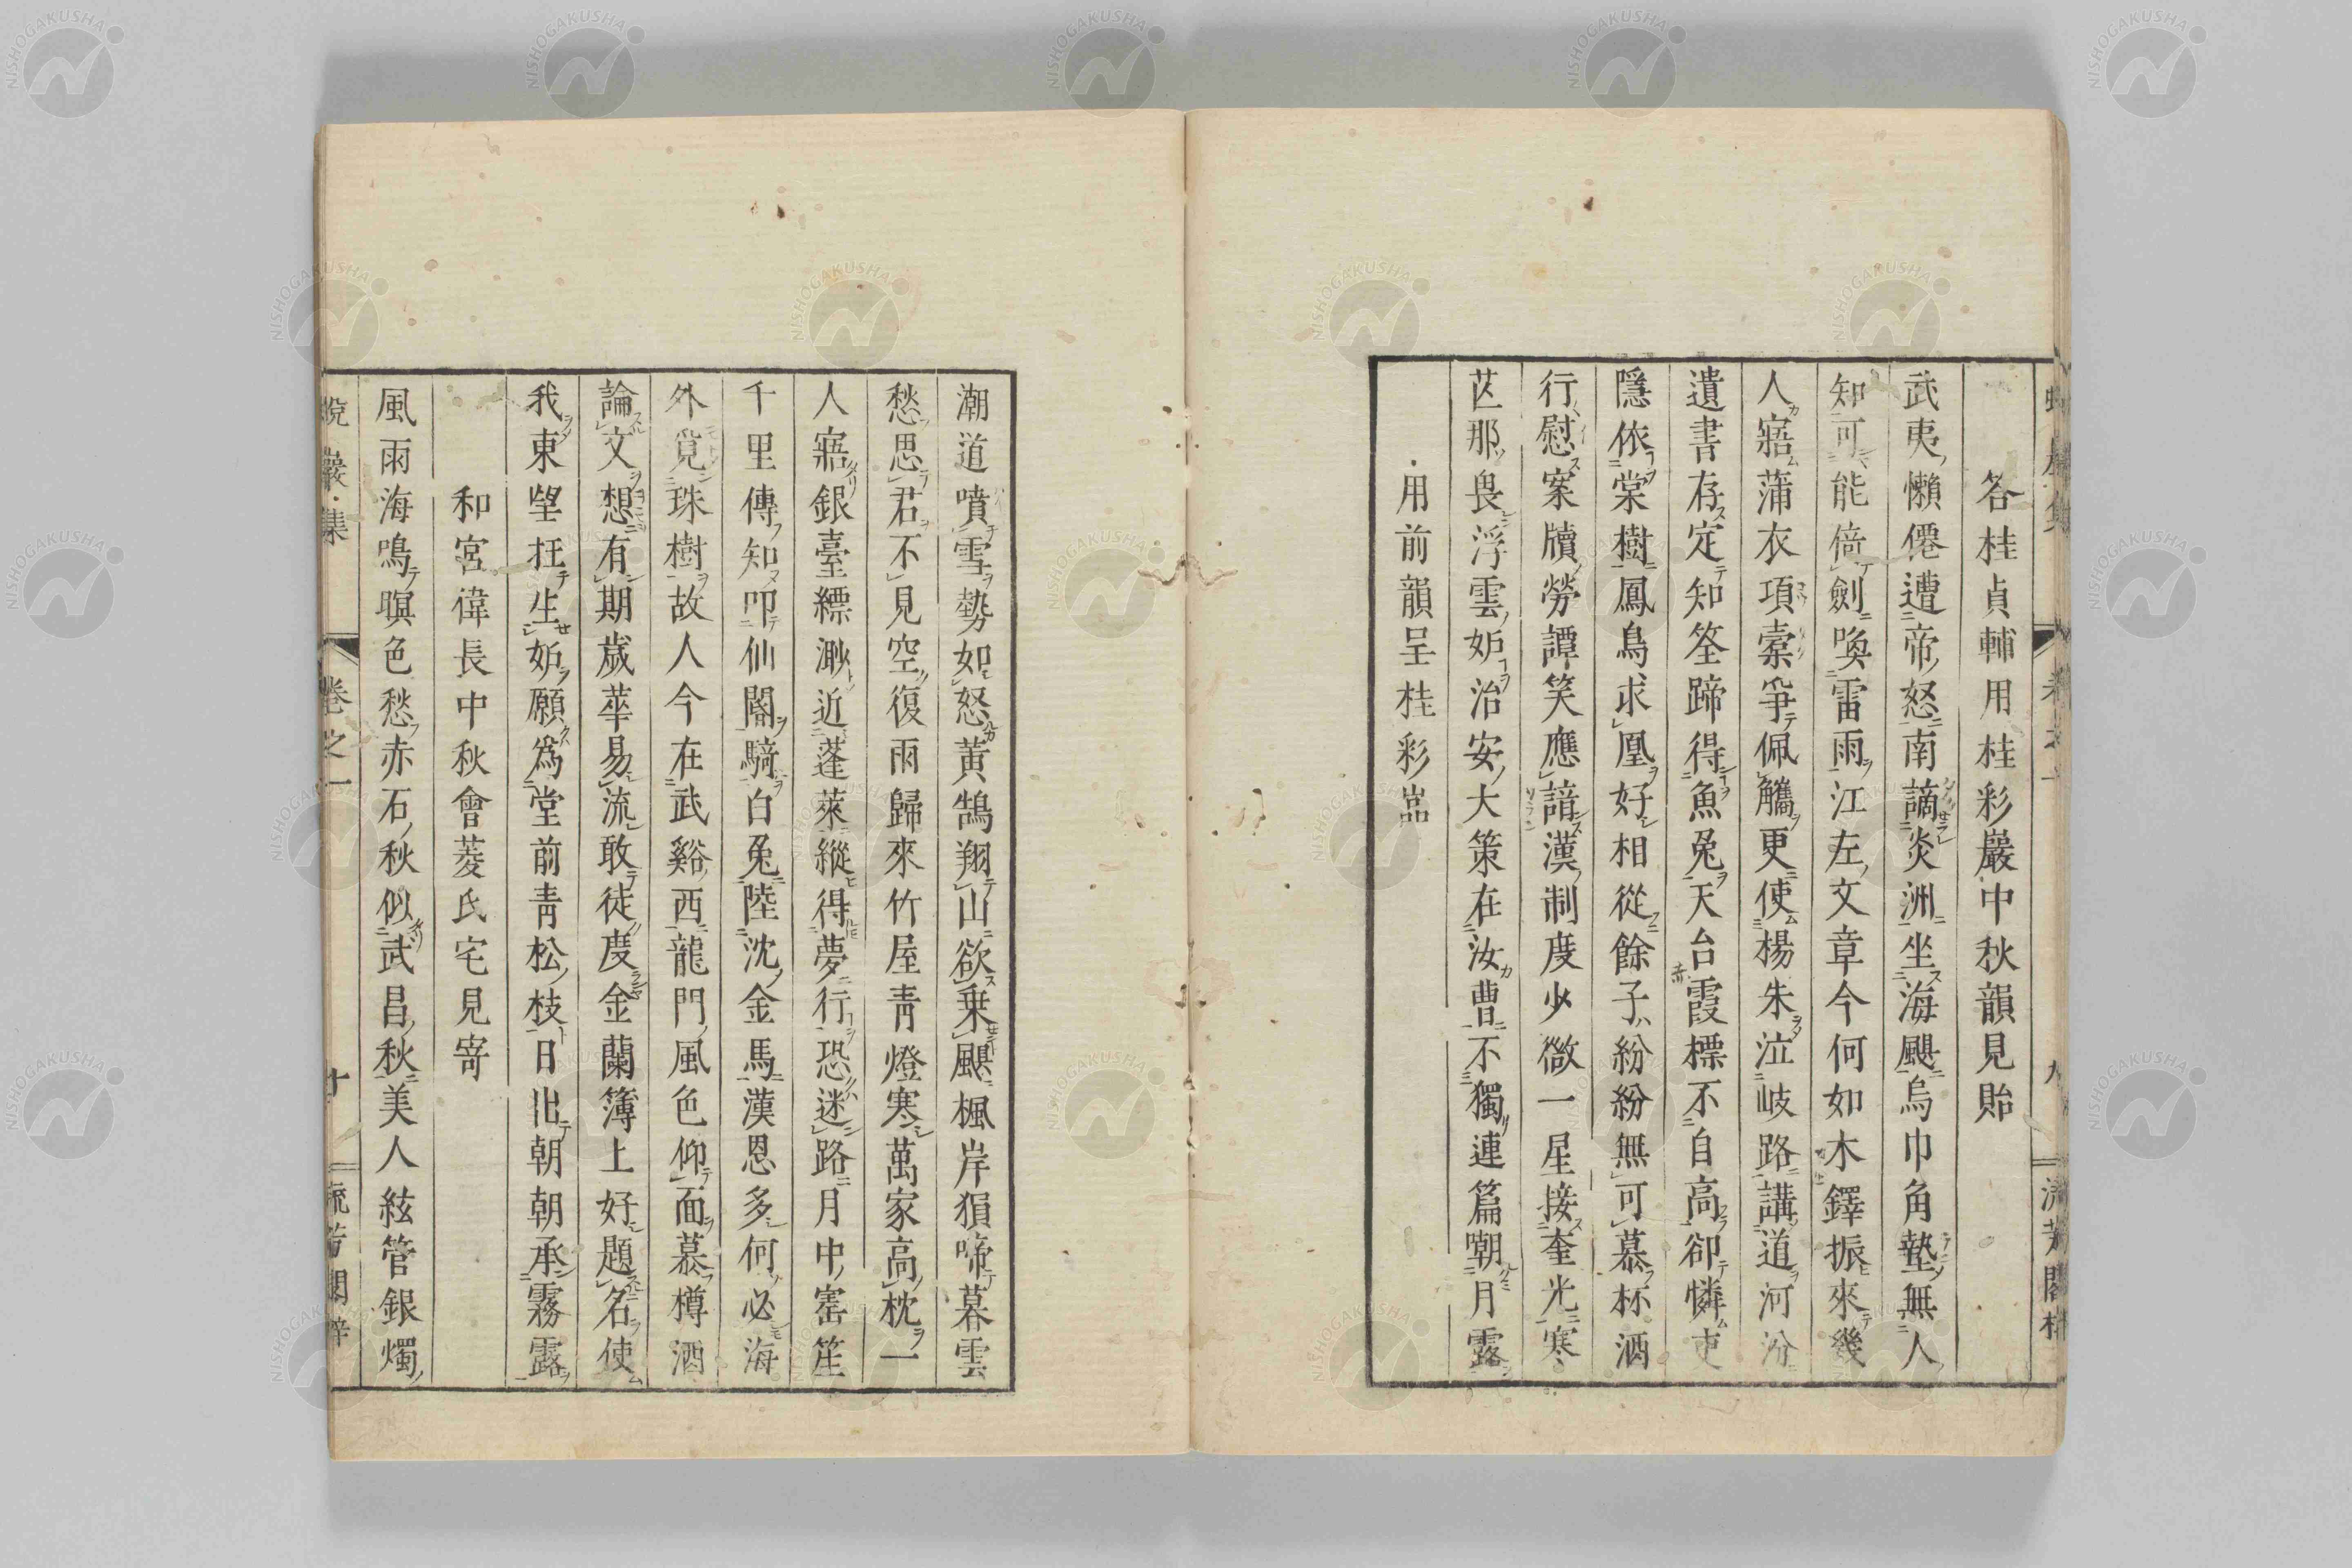 答桂貞輔用桂彩巖中秋韻見貽
武夷懶僊遭帝怒南謫炎洲坐海颶烏巾角墊無人
知可能倚劍喚雷雨江左文章今何如木鐸振來幾
人寤蒲衣項橐爭佩觿更使楊朱泣岐路講道河汾
遺書存定知筌蹄得魚兔天台霞標不自高卻憐吏
隱依棠樹鳳鳥求凰好相從餘子紛紛無可慕杯酒
行慰案牘勞譚笑應諳漢制度少微一星接奎光寒
芒那畏浮雲妬治安大策在汝曹不獨連篇嘲月露
用前韻呈桂彩巖
潮道噴雪勢如怒黃鵠翔山欲乗颶楓岸猿啼暮雲
愁思君不見空復雨歸來竹屋靑燈寒萬家高枕一
人寤銀臺縹渺近蓬萊縱得夢行恐迷路月中寄笙
千里傳知叩仙閣騎白兔陸沈金馬漢恩多何必海
外覓珠樹故人今在武谿西龍門風色仰面慕樽酒
論文想有期歲華易流敢徒度金蘭簿上好題名使
我東望狂生妬願爲堂前靑松枝日出朝朝承霧露
和宮偉長中秋會菱氏宅見寄
風雨海鳴暝色愁赤石秋似武昌秋美人絃管銀燭
蛻巖集 卷之一 十